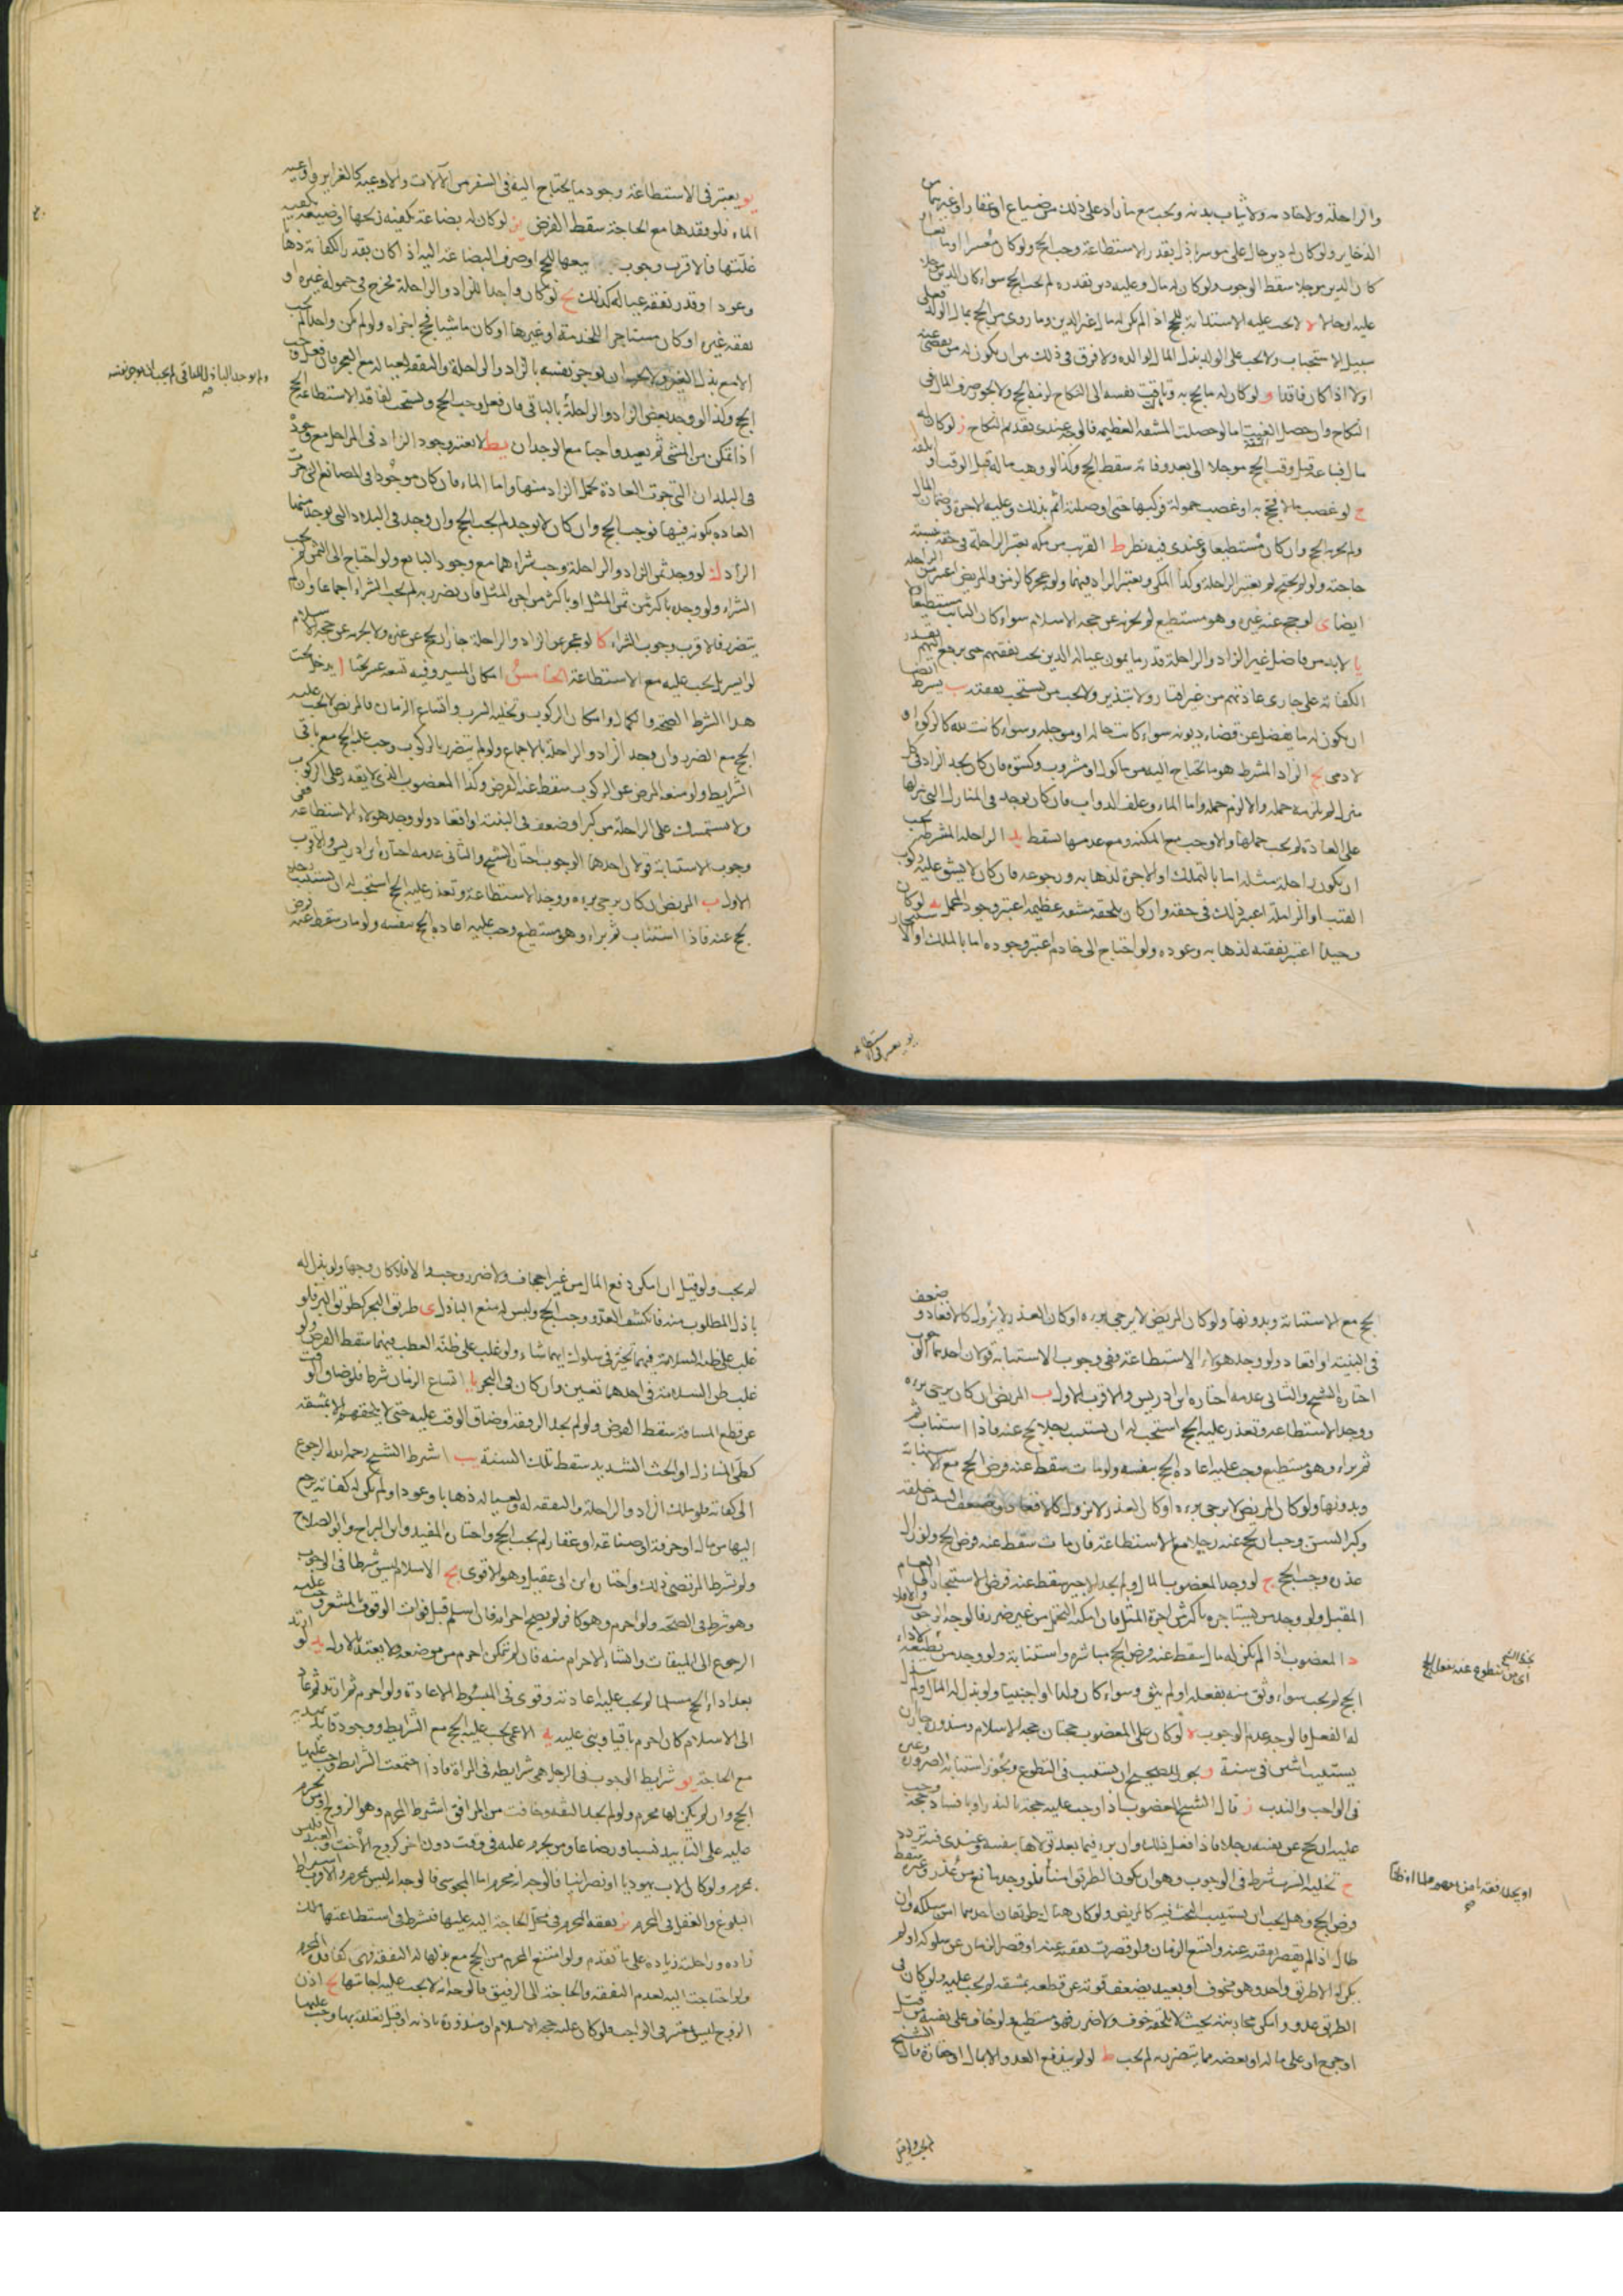 والراحلة ولا خادمه ولا ثياب بدنه ويجب بيع ما زاد على ذلك من ضياع او عقار او غيرهما من
الذخاير ولو كان له دين حال على موسر باذل بقدر الاستطاعة وجب الحج ولو كان معسرا او مانعا او
كان الدين مؤجلا سقط الوجوب ولو كان له مال وعليه دين بقدره لم يجب الحج سواء كان الدين مؤجلا
عليه او حالا ه لا يجب عليه الاستدانة للحج اذا لم يكن له مال غير الدين وما روى من الحج بمال الولد فعلى
سبيل الاستحباب ولا يجب على الولد بذل المال لوالده ولا فرق في ذلك من ان يكون له من يقضى عنه
اولا اذا كان فاقدا و لو كان له ما يحج به وتاقت نفسه الى النكاح لزمه الحج ولا يجوز صرف المال في
النكاح وان حصل العنت اما لو حصلت المشقة العظيمة فالوجه عندى تقديم النكاح ز لو كان له
مال فباعه قبل وقت الحج مؤجلا الى بعد وفاته سقط الحج وكذا لو وهب ماله قبل الوقت او اتلفه
ح لو غصب مالا فحج به او غصب حمولة فركبها حتى اوصلته اثم بذلك وعليه الاجرة وضمان المال
ولم يجزه الحج وان كان مستطيعا وعندى فيه نظر ط القريب من مكة يعتبر الراحلة في حقه نسبة
حاجته ولو لم يحتج لم يعتبر الراحلة وكذا المكي ويعتبر الزاد فيهما ولو عجز كالزمن والمريض اعتبر من الراحلة
ايضا ى لو حج عنه غيره وهو مستطيع لم يجزه عن حجة الاسلام سواء كان النايب مستطيعا
يا لا بد من فاضل غير الزاد والراحلة قدر ما يمون عياله الذين يجب نفقتهم حتى يرجع اليهم بقدر
الكفاية على جارى عادتهم من غير اقتار ولا تبذير ولا يجب من يستحب نفقته يب يشرط ايضا
ان يكون له ما يفضل عن قضاء ديونه سواء كانت حالة او مؤجلة وسواء كانت لله كالزكوة او
لادمى يج الزاد المشرط هو ما يحتاج اليه من ماكول او مشروب وكسوة فان كان يجد الزاد في كل
منزل لم يلزمه حمله والا لزم حمله واما الماء وعلف الدواب فان كان يوجد في المنازل التي ينزلها
على العادة لم يجب حملها والا وجب مع المكنة ومع عدمها يسقط يد الراحلة المشرطة يجب
ان يكون راحلة مثله اما بالتملك او الاجرة لذهابه ورجوعه فان كان لا يشق عليه ركوب
القتب او الزاملة اعتبر ذلك في حقه وان كان يلحقه مشقة عظيمة اعتبر وجود المحمل يه لو كان
وحيدا اعتبر نفقته لذهابه وعوده ولو احتاج الى خادم اعتبر وجوده اما بالملك او الاستيجار
يو يعتبر في الاستطاعة
يو يعتبر في الاستطاعة وجود ما يحتاج اليه في السفر من الآلات والاوعية كالغراير واوعية
الماء فلو فقدها مع الحاجة سقط الفرض يز لو كان له بضاعة تكفيه ربحها او ضيعة تكفيه
غلتها فالاقرب وجوب بيعها للحج او صرف البضاعة اليه اذا كان بقدر الكفاية ذهابا
وعودا وقدر نفقة عياله كذلك يح لو كان واجدا للزاد والراحلة فخرج في حمولة غيره او
نفقة غيره او كان مستاجرا للخدمة او غيرها او كان ماشيا فحج اجزاه ولو لم يكن واجدا لم يجب
الا مع بذل الغير ولا يجب ان يوجر نفسه بالزاد والراحلة والنفقة لعياله مع العجز فان فعل وجب
الحج وكذا لو وجد بعض الزاد والراحلة بالباقي فان فعل وجب الحج ويستحب لفاقد الاستطاعة الحج
اذا تمكن من المشي ثم يعيد واجبا مع الوجدان يط لا يعتبر وجود الزاد في المراحل مع وجوده
في البلدان التي جرت العادة بحمل الزاد منها واما الماء فان كان موجودا في المصانع التي جرت
العادة بكونه فيها وجب الحج وان كان لا يوجد لم يجب الحج وان وجد في البلدة التي يوجد منها
الزاد ك لو وجد ثمن الزاد والراحلة وجب شراءهما مع وجود البايع ولو احتاج الى الثمن لم يجب
الشراء ولو وجد باكثر من ثمن المثل او باكثر من اجر المثل فان تضرر به لم يجب الشراء اجماعا وان لم
يتضرر فالاقرب وجوب الشراء كا لو عجز عن الزاد والراحلة جاز ان يحج عن غيره ولا يجزيه عن حجة الاسلام
لو ايسر بل يجب عليه مع الاستطاعة الخامس امكان المسير وفيه تسعة عشر بحثا ا يدخل تحت
هذا الشرط الصحة والكمال وامكان الركوب وتخلية السرب واتساع الزمان فالمريض لا يجب عليه
الحج مع الضرر وان وجد الزاد والراحلة بالاجماع ولو لم يتضرر بالركوب وجب عليه الحج مع باقى
الشرايط ولو منعه المرض عن الركوب سقط عنه الفرض وكذا المعضوب الذى لا يقدر على الركوب
ولا يستمسك على الراحلة من كبر او ضعف في البنية او اقعاد ولو وجد هولاء الاستطاعة ففى
وجوب الاستنابة قولان احدهما الوجوب اختاره الشيخ والثانى عدمه اختاره ابن ادريس والاقرب
الاول ب المريض ان كان يرجى برءه ووجد الاستطاعة وتعذر عليه الحج استحب له ان يستنيب رجلا
يحج عنه فاذا استناب ثم برا وهو مستطيع وجب عليه اعادة الحج بنفسه ولو مات سقط عنه فرض
ولو وجد الباذل للباقى لم يجب ان يوجر نفسه
الحج مع الاستنابة وبدونها ولو كان المريض لا يرجى برءه او كان العذر لا يزول كالاقعاد وضعف
في البنية او اقعاد ولو وجد هولاء الاستطاعة ففى وجوب الاستنابة قولان احدهما الوجوب
اختاره الشيخ والثانى عدمه اختاره ابن ادريس والاقرب الاول ب المريض ان كان يرجى برءه
ووجد الاستطاعة وتعذر عليه الحج استحب له ان يستنيب رجلا يحج عنه فاذا استناب
ثم برا وهو مستطيع وجب عليه اعادة الحج بنفسه ولو مات سقط عنه فرض الحج مع الاستنابة
وبدونها ولو كان المريض لا يرجى برءه او كان العذر لا يزول كالاقعاد وضعف البدن خلقة
وكبر السن وجب ان يحج عنه رجلا مع الاستطاعة فان مات سقط عنه فرض الحج ولو زال
عذره وجب الحج ج لو وجد المعضوب المال ولم يجد الاجير سقط عنه فرض الاستيجار الى العام
المقبل ولو وجد من يستاجره باكثر من اجرة المثل فان امكنه التحمل من غير ضرر فالوجه الوجوب والا فلا
د المعضوب اذا لم يكن له مال سقط عنه فرض الحج مباشرة واستنابة ولو وجد من يطيعه لاداء
الحج لم يجب سواء وثق منه بفعله او لم يثق وسواء كان ولدا او اجنبيا ولو بذل له المال ولم يبذل
له الفعل فالوجه عدم الوجوب ه لو كان على المعضوب حجتان حجة الاسلام ومنذورة جاز ان
يستنيب اثنين في سنة و يجوز للصحيح ان يستنيب في التطوع ويجوز استنابة الصرورة وغيره
في الواجب والندب ز قال الشيخ المعضوب اذا وجب عليه حجة بالنذر او بافساد حجة وجب
عليه ان يحج عن نفسه رجلا فاذا فعل ذلك وان برء فيما بعد تولاها بنفسه وعندى فيه تردد
ح تخلية السرب شرط في الوجوب وهو ان يكون الطريق امنا فلو وجد مانع من عدو وغيره سقط
فرض الحج وهل يجب ان يستنيب البحث فيه كالمريض ولو كان هناك طريقان احدهما امن سلكه وان
طال اذا لم يقصر نفقته عنه واتسع الزمان ولو قصرت نفقته عنه او قصر الزمان عن سلوكه او لم
يكن له الا طريق واحد وهو مخوف او بعيد يضعف قوته عن قطعه بمشقة لم يجب عليه ولو كان في
الطريق عدو وامكن محاربته بحيث لا يلحقه خوف ولا ضرر فهو مستطيع ولو خاف على نفسه من قتل
او جرح او على ماله او بعضه مما يتضرر به لم يجب ط لو لم يندفع العدو الا بمال او خفارة قال الشيخ
لم يجب ولو قيل
لم يجب ولو قيل ان امكن دفع المال من غير اجحاف ولا ضرر وجب والا فلا كان وجها ولو بذل له
باذل المطلوب منه فانكشف العدو وجب الحج وليس له منع الباذل ى طريق البحر كطريق البر فلو
غلب على ظنه السلامة فيهما تخير في سلوك ايهما شاء ولو غلب على ظنه العطب فيهما سقط الفرض ولو
غلب ظن السلامة في احدهما تعين وان كان في البحر يا اتساع الزمان شرط فلو ضاق الوقت
عن قطع المسافة سقط الفرض ولو لم يجد الرفقة وضاق الوقت عليه حتى لا يلحقهم الا بمشقة
كطى المنازل او الحث الشديد سقط تلك السنة يب اشرط الشيخ رحمه الله الرجوع
الى كفاية فلو ملك الزاد والراحلة والنفقة له ولعياله ذهابا وعودا ولم يكن له كفاية يرجع
اليها من مال او حرفة او صناعة او عقار لم يجب الحج واختاره المفيد وابن البراج وابو الصلاح
ولم يشرط المرتضى ذلك واختاره ابن ابى عقيل وهو الاقوى يج الاسلام ليس شرطا في الوجوب
وهو شرط في الصحة ولو احرم وهو كافر لم يصح احرامه فان اسلم قبل فوات الوقوف بالمشعر وجب عليه
الرجوع الى الميقات وانشاء الاحرام منه فان لم يتمكن احرم من موضعه ولا يعتد بالاول يد لو ارتد
بعد اداء الحج مسلما لم يجب عليه اعادته وقوى في المبسوط الاعادة ولو احرم ثم ارتد ثم عاد
الى الاسلام كان احرامه باقيا وبنى عليه يه الاعمى يجب عليه الحج مع الشرايط ووجود قايد يهديه
مع الحاجة يو شرايط الوجوب في الرجل هى شرايطه في المراة فاذا اجتمعت الشرايط وجب عليها
الحج وان لم يكن لها محرم ولو لم يجد الثقة وخافت من المرافق اشرط المحرم وهو الزوج او من يحرم
عليه على التابيد نسبا ورضاعا ومن يحرم عليه في وقت دون اخر كزوج الاخت والعبد فليس
بمحرم ولو كان الاب يهوديا او نصرانيا فالوجه انه محرم اما المجوسى فالوجه انه ليس بمحرم والاقرب اشراط
البلوغ والعقل في المحرم يز نفقة المحرم في محل الحاجة اليه عليها فيشرط في استطاعتها ملك
زاده وراحلته زيادة على ما تقدم ولو امتنع المحرم من الحج مع بذلها له النفقة فهى كفاقدة المحرم
ولو احتاجت اليه لعدم الثقة والحاجة الى الرفيق فالوجه انه لا يجب عليه اجابتها يح اذن
الزوج ليس معتبر في الواجب فلو كان عليها حجة الاسلام او منذورة باذنه او قبل تعلقه بها وجب عليها